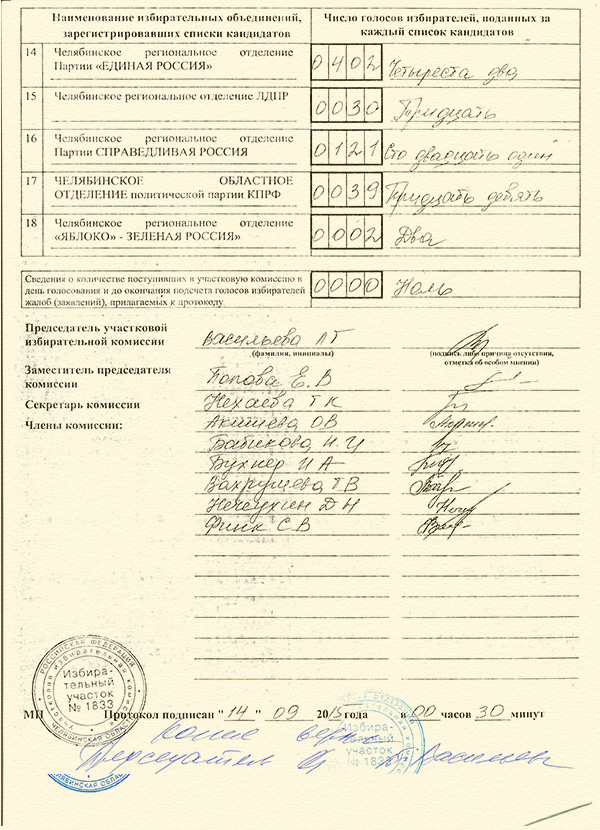 Наименование избирательных объединений, зарегистрировавших списки кандидатов
Число голосов избирателей, поданных за каждый список кандидатов
14 Челябинское региональное отделение 0402 Четыреста два
Партии «ЕДИНАЯ РОССИЯ»
15 Челябинское региональное отделение ЛДПР 0030 Тридцать
16 Челябинское региональное отделение 0121 Сто двадцать один
Партии СПРАВЕДЛИВАЯ РОССИЯ
17 ЧЕЛЯБИНСКОЕ ОБЛАСТНОЕ 0039 Тридцать девять
ОТДЕЛЕНИЕ политической партии КПРФ
18 Челябинское региональное отделение 0002 Два
«ЯБЛОКО» - ЗЕЛЕНАЯ РОССИЯ»
Сведения о количестве поступивших в участковую комиссию в
день голосования и до окончания подсчета голосов избирателей 0000 Ноль
жалоб (заявлений), прилагаемых к протоколу
Председатель участковой
избирательной комиссии Васильева Л Г
(фамилия, инициалы) (подпись либо причина отсутствия,
отметка об особом мнении)
Заместитель председателя
комиссии Попова Е, В
Секретарь комиссии Нехаева Т К
Члены комиссии: Акишева О В
Бабикова Н. Ц
Бухнер И А
Вахрушева Т В
Нечеухин Д Н
Финк С. В
РОССИЙСКАЯ ФЕДЕРАЦИЯ
Избира-
тельный
участок
№ 1833
ЧЕЛЯБИНСКАЯ ОБЛАСТЬ
МП Протокол подписан "14" 09 2015 года в 00 часов 30 минут
Копия верна
Председатель Васильева
Избира-
тельный
участок
№ 1833
ЧЕЛЯБИНСКАЯ ОБЛА